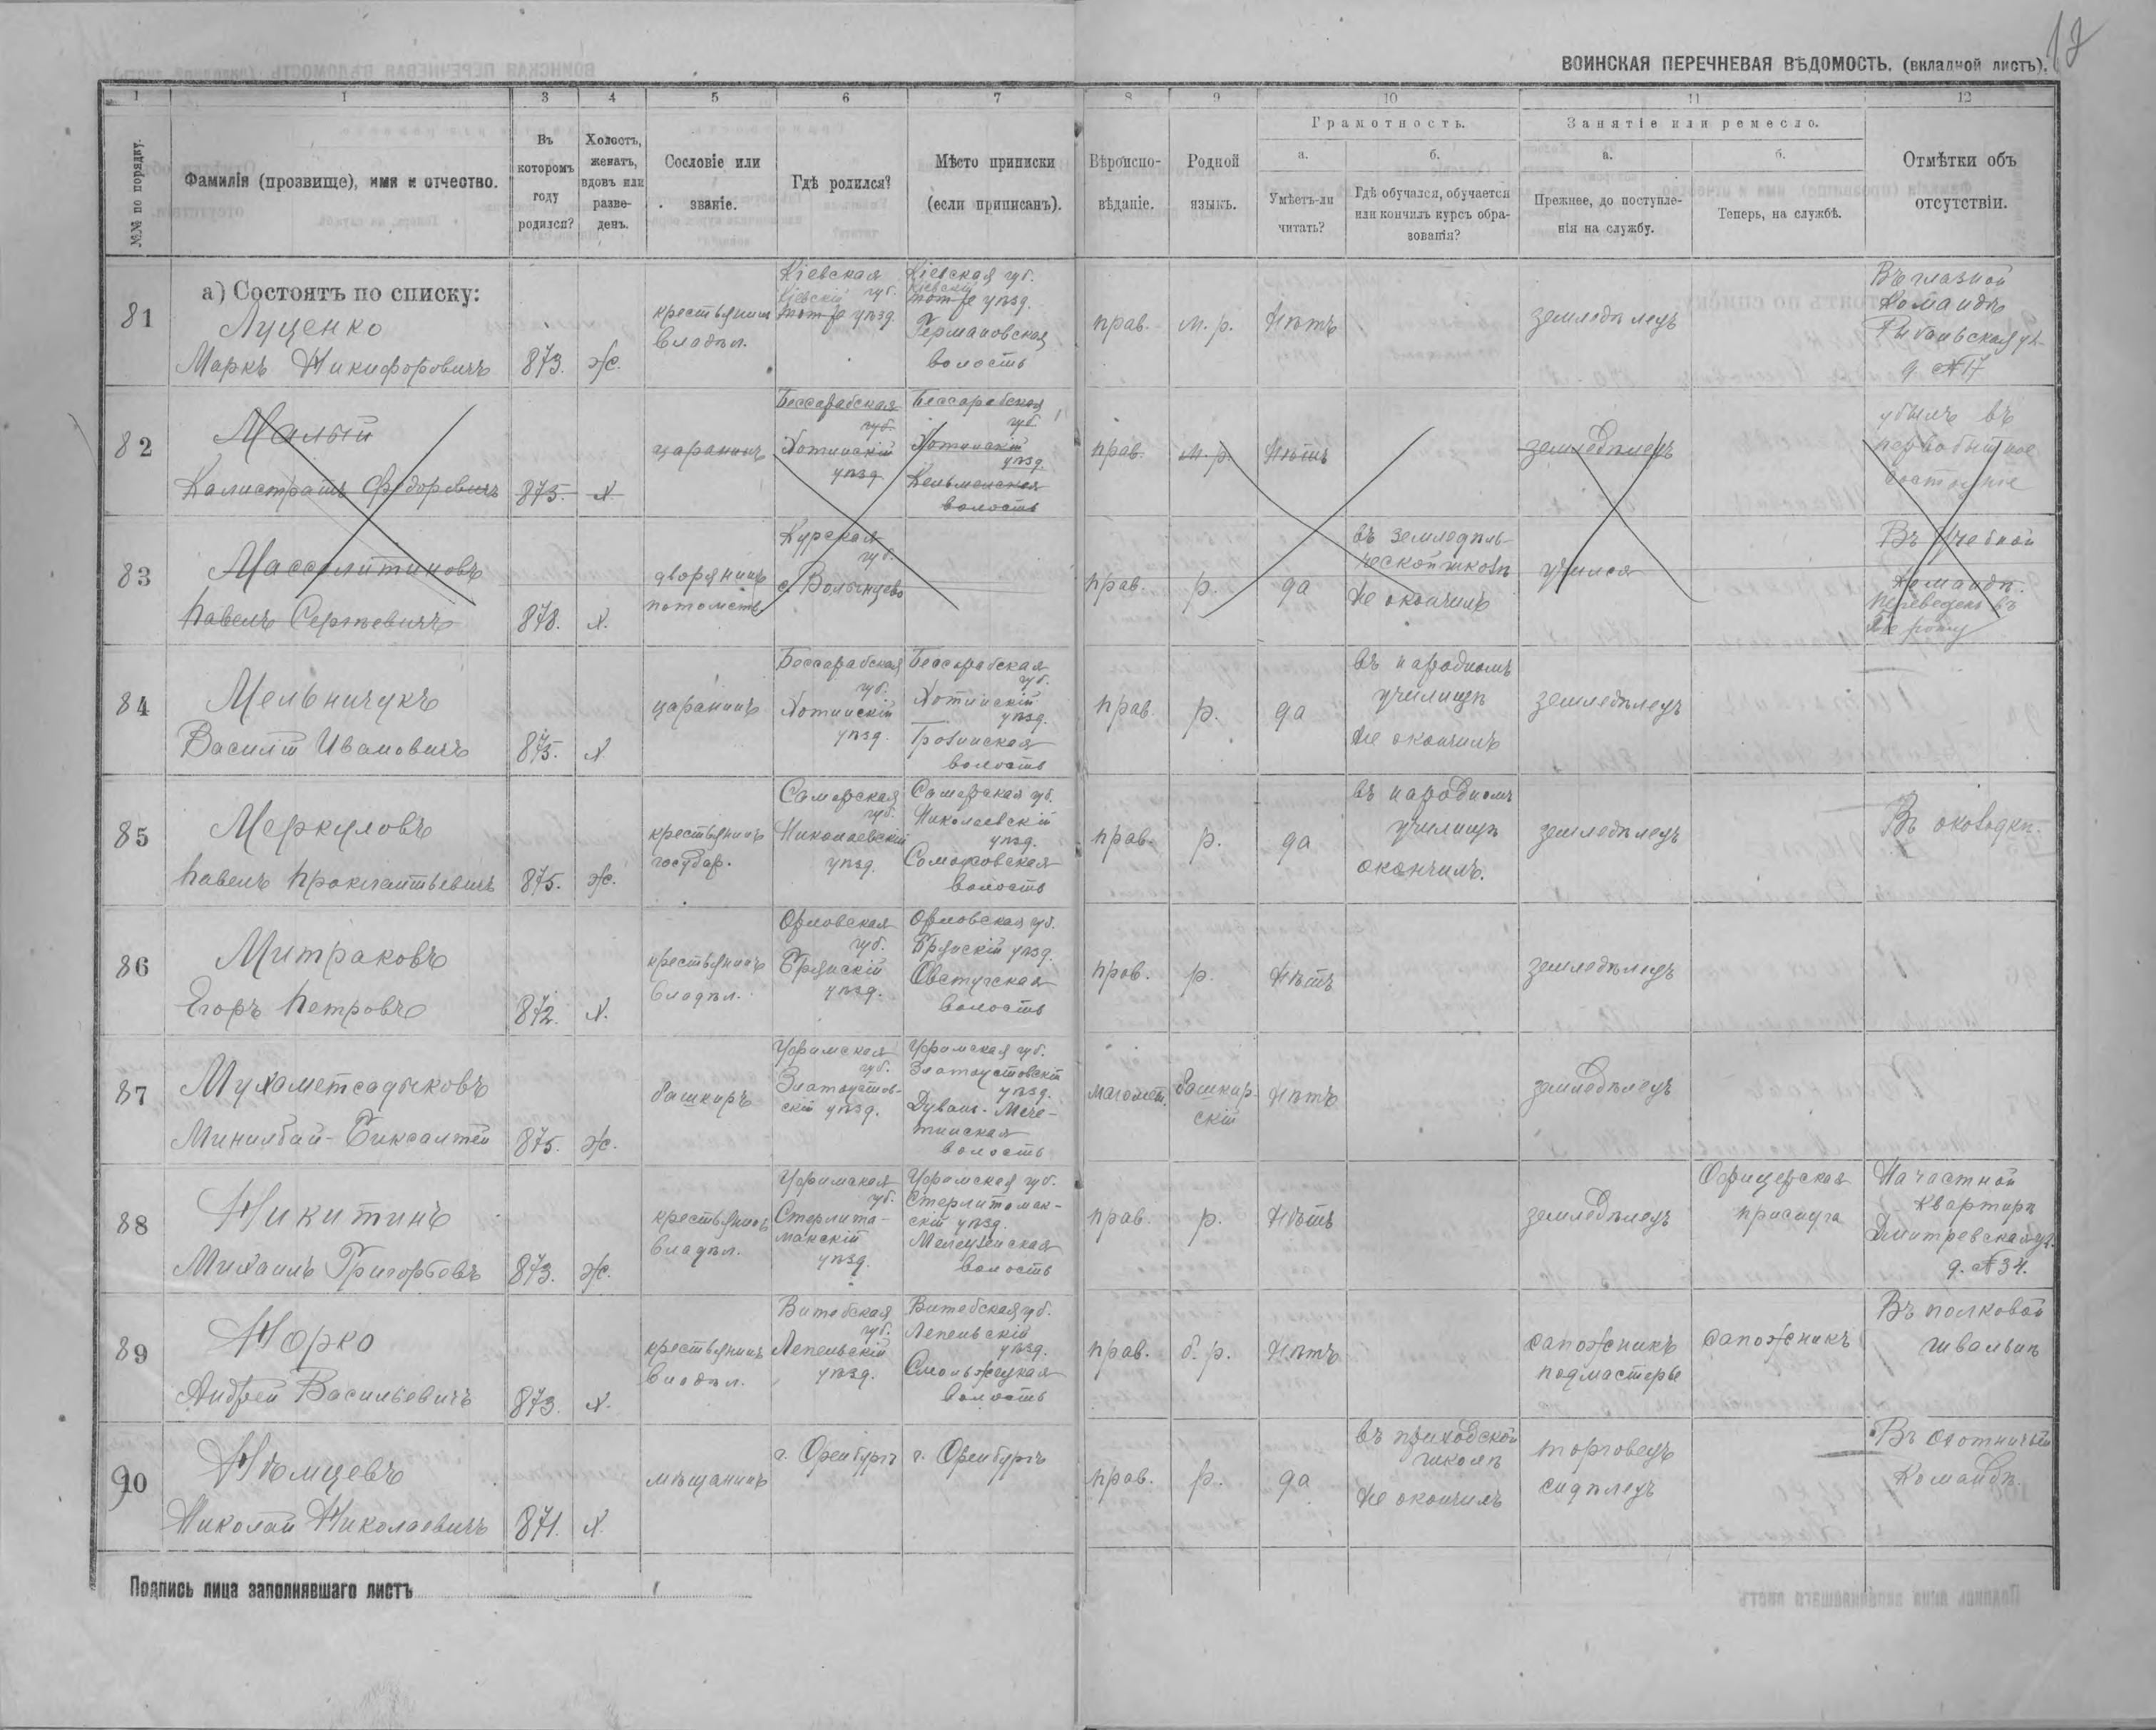 12
ВОИНСКАЯ ПЕРЕЧНЕВАЯ ВѢДОМОСТЬ. (вкладной листъ).
1 1 3 4 5 6 7 8 9 10 11 12
№№ по порядку.
Фамилія (прозвище), имя и отчество.
Въ которомъ году родился?
Холостъ, женатъ, вдовъ или разведенъ.
Сословіе или званіе.
Гдѣ родился?
Мѣсто приписки (если приписанъ).
Вѣроисповѣданіе.
Родной языкъ.
Грамотность.
а. Умѣетъ-ли читать?
б. Гдѣ обучался, обучается или кончилъ курсъ образованія?
Занятіе или ремесло.
а. Прежнее, до поступленія на службу.
б. Теперь, на службѣ.
Отмѣтки объ отсутствіи.
а) Состоятъ по списку:
81
Луценко
Маркъ Никифоровичъ
873.
ж.
крестьянинъ
владѣл.
Кіевская
губ.
Кіевскій
тотъ же уѣзд.
Кіевская губ.
Кіевскій
тотъ же уѣзд.
Германовская
волость
прав.
м. р.
Нѣтъ
земледѣлецъ
Въ глазной
командѣ
д. №17
82
Малый
Калистратъ Федоровичъ
875.
х.
царанинъ
Бессарабская
губ.
Хотинскій
уѣзд.
Бессарабская
губ.
Хотинскій
уѣзд.
Кельменская
волость
прав.
м. р.
Нѣтъ
земледѣлецъ
убылъ въ
первобытное
состояніе
83
Массалитиновъ
Павелъ Сергѣевичъ
878.
х.
дворянинъ
потомств.
Курская
губ.
с. Волынцево
прав.
р.
да
въ земледѣль-
ческой школѣ
Не окончилъ
учился
Въ Учебной
командѣ.
Переведенъ въ
роту
84
Мельничукъ
Василій Ивановичъ
875.
х.
царанинъ
Бессарабская
губ.
Хотинскій
уѣзд.
Бессарабская
губ.
Хотинскій
уѣзд.
волость
прав.
р.
да
въ народномъ
училищѣ
Не окончилъ
земледѣлецъ
85
Меркуловъ
Павелъ
875.
ж.
крестьянинъ
государ.
Самарская
губ.
Николаевскій
уѣзд.
Самарская губ.
Николаевскій
уѣзд.
волость
прав.
р.
да
въ народномъ
училищѣ
окончилъ.
земледѣлецъ
Въ околодкѣ.
86
Митраковъ
Егоръ Петровъ
872.
х.
крестьянинъ
владѣл.
Орловская
губ.
Брянскій
уѣзд.
Орловская губ.
Брянскій уѣзд.
Овстугская
волость
прав.
р.
Нѣтъ
земледѣлецъ
87
Мухаметсадыковъ
875.
ж.
башкиръ
Уфимская
губ.
Златоустов-
скій уѣзд.
Уфимская губ.
Златоустовскій
уѣзд.
Дуванъ-Мече-
тлинская
волость
магомет.
башкир-
скій
Нѣтъ
земледѣлецъ
88
Никитинъ
Михаилъ Григорьевъ
873.
ж.
крестьянинъ
владѣл.
Уфимская
губ.
Стерлита-
макскій
уѣзд.
Уфимская губ.
Стерлитомак-
скій уѣзд.
Мелеузенская
волость
прав.
р.
Нѣтъ
земледѣлецъ
Офицерская
прислуга
На частной
квартирѣ
Дмитревская ул.
д. №34.
89
Норко
Андрей Васильевичъ
873.
х.
крестьянинъ
владѣл.
Витебская
губ.
Лепельскій
уѣзд.
Витебская губ.
Лепельскій
уѣзд.
волость
прав.
б. р.
Нѣтъ
сапожникъ
подмастерье
сапожникъ
Въ полковой
швальнѣ
90
Нѣмцевъ
Николай Николаевичъ
871.
х.
мѣщанинъ
г. Оренбургъ
г. Оренбургъ
прав.
р.
да
въ приходской
школѣ
Не окончилъ
торговецъ
сидѣлецъ
Въ охотничьей
командѣ.
Подпись лица заполнявшаго листъ